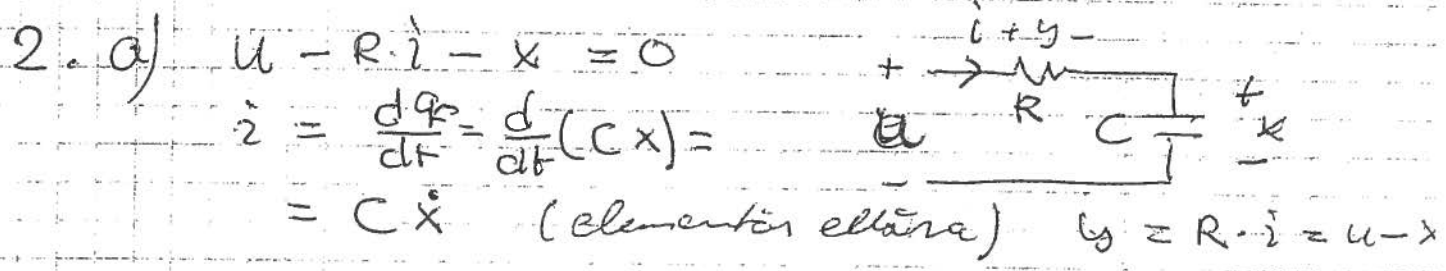 2. a) u - R·i - x = 0
i = dq/dt = d/dt (Cx) =
= Cẋ (elementär ellära) y = R·i = u - x
i + y -
+
R
u
C
+
x
-
-